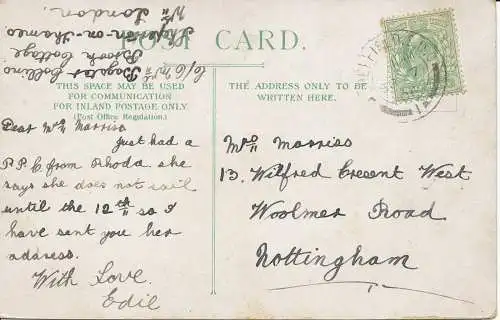 POST CARD.
THIS SPACE MAY BE USED
FOR COMMUNICATION
FOR INLAND POSTAGE ONLY.
(Post Office Regulation.)
THE ADDRESS ONLY TO BE
WRITTEN HERE.
Dear Mrs Marriss
Just had a
P.P.C from Rhoda she
says she does not sail
until the 12th so I
have sent you her
address.
With Love.
Edie
C/o Mrs
Collins
Brook Cottage
on-Thames
London.
Mrs Marriss
13. Wilfred Cresent West
Woolmer Road
Nottingham